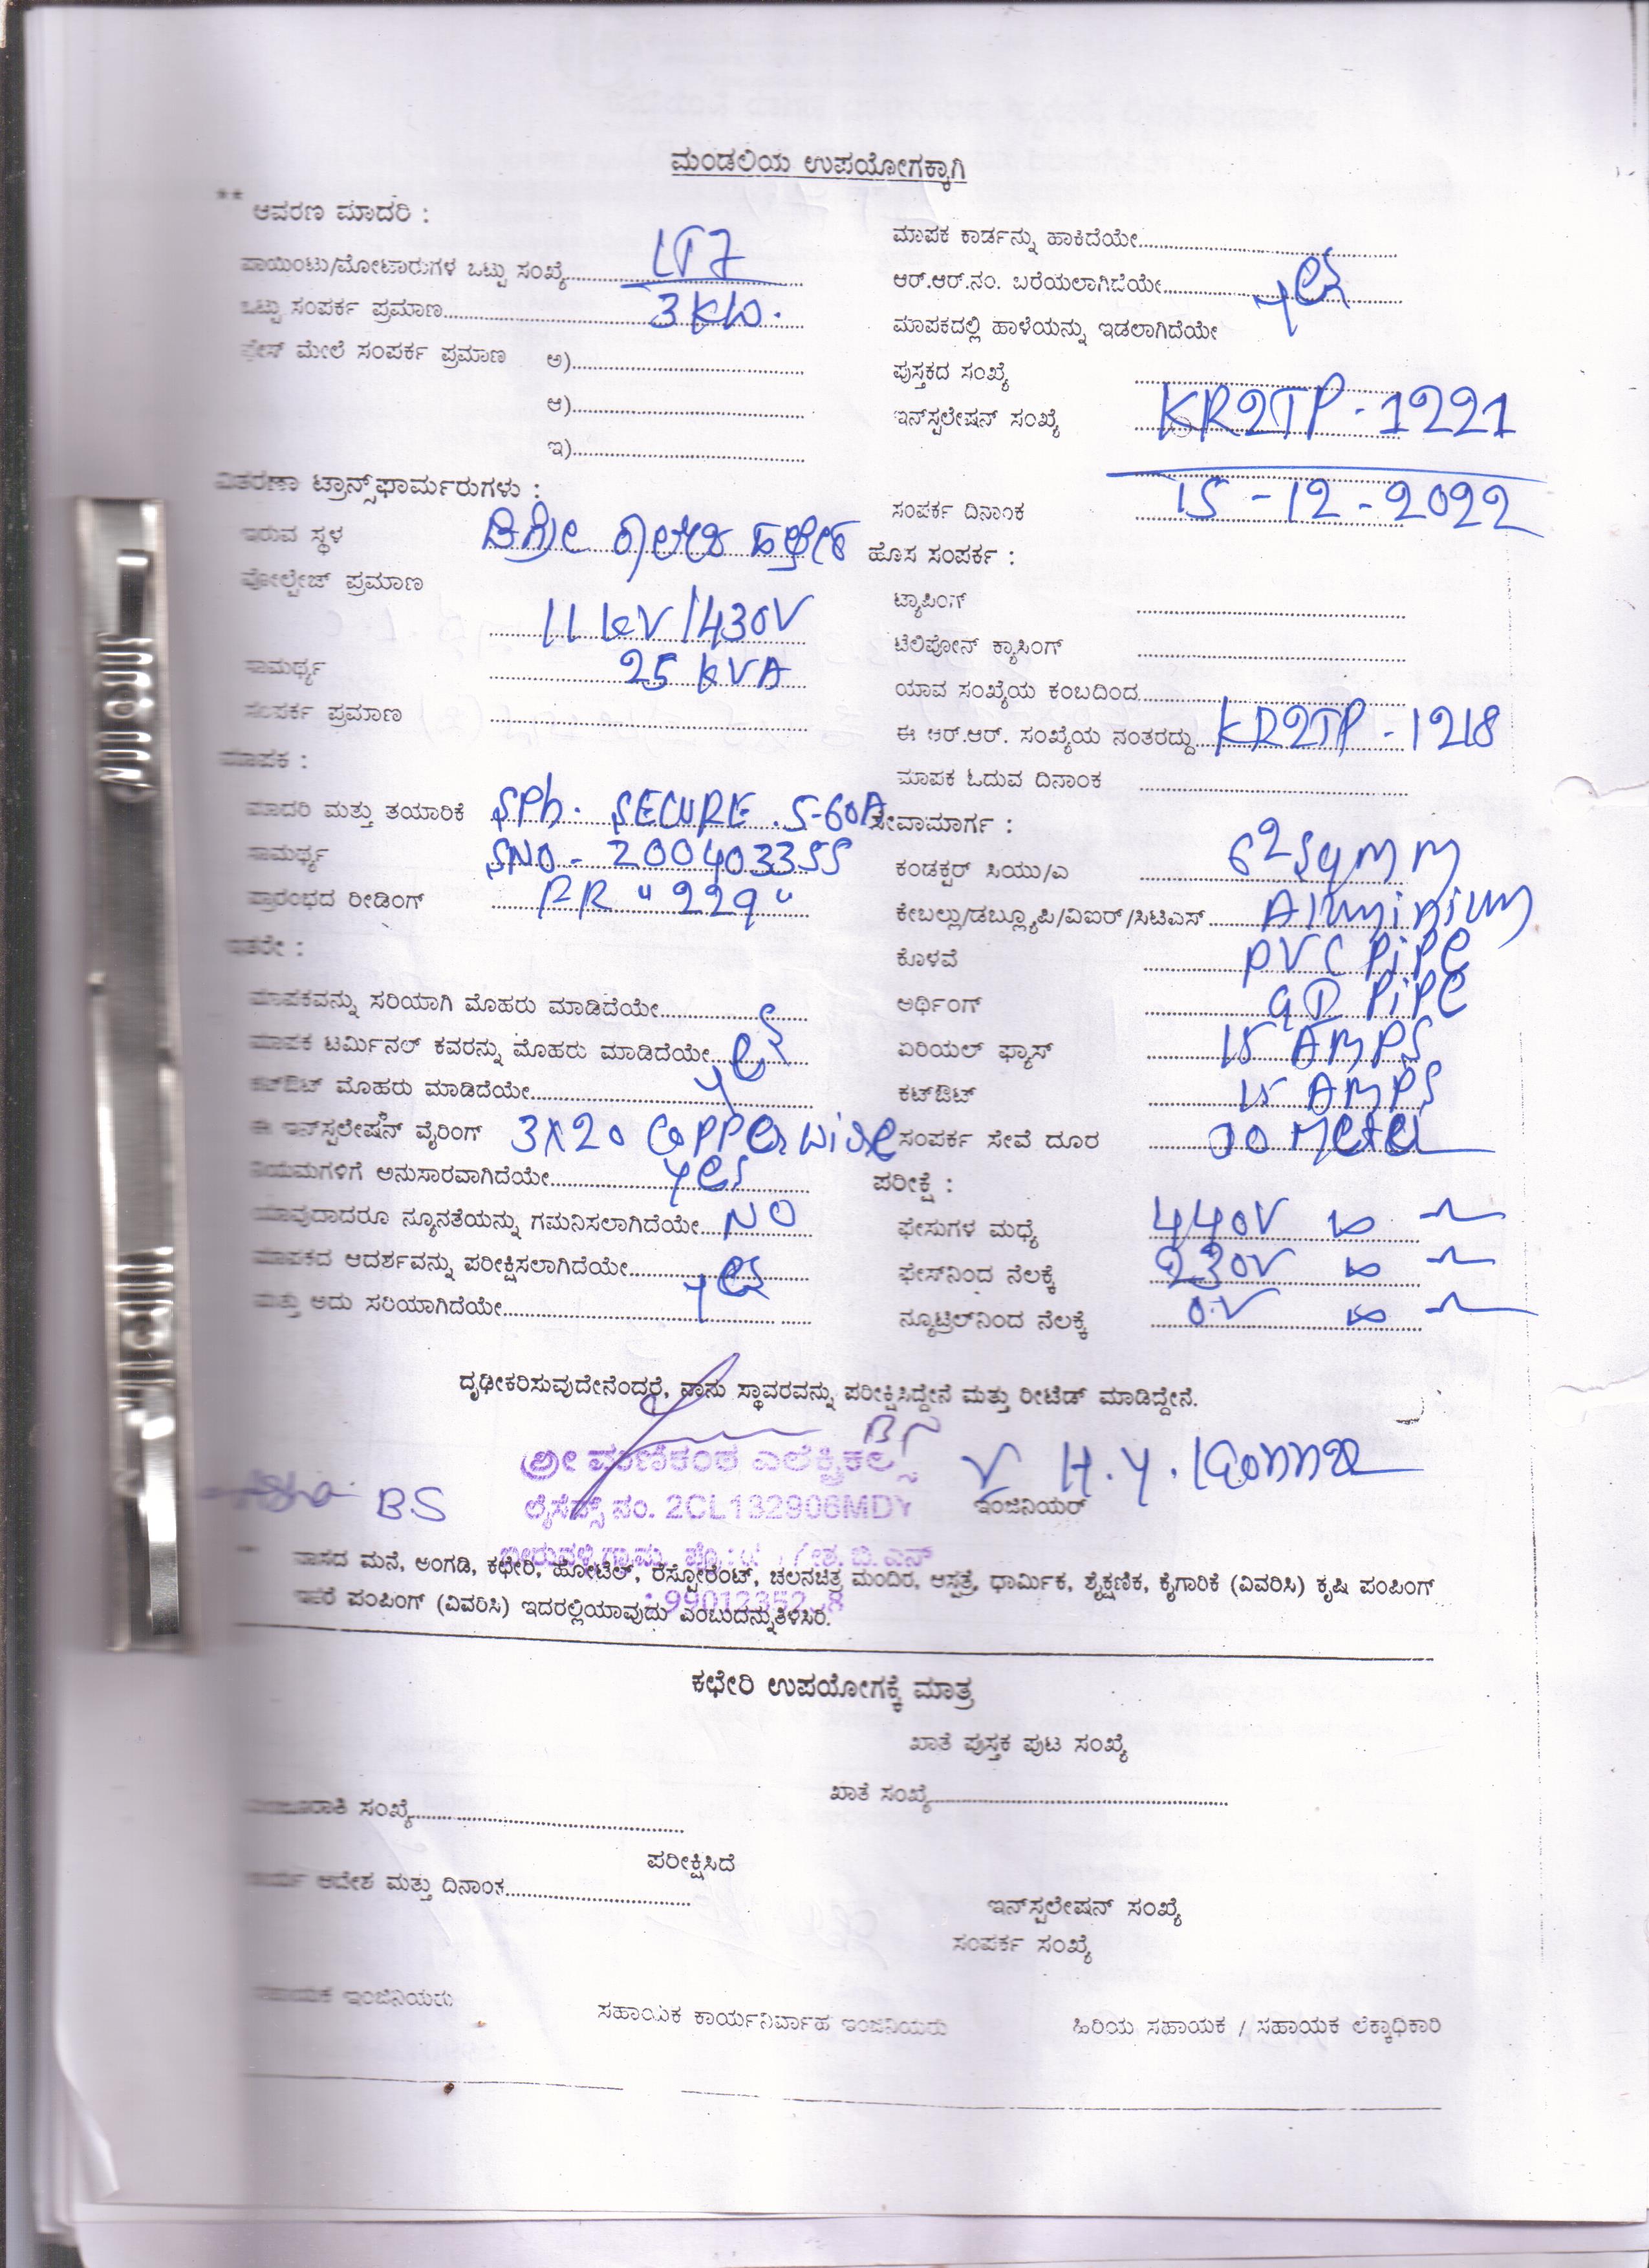 ಮಂಡಲಿಯ ಉಪಯೋಗಕ್ಕಾಗಿ
** ಆವರಣ ಮಾದರಿ :
ಪಾಯಿಂಟು/ಮೋಟಾರುಗಳ ಒಟ್ಟು ಸಂಖ್ಯೆ LT7
ಒಟ್ಟು ಸಂಪರ್ಕ ಪ್ರಮಾಣ 3 KW.
ಫೇಸ್ ಮೇಲೆ ಸಂಪರ್ಕ ಪ್ರಮಾಣ ಅ)
ಆ)
ಇ)
ವಿತರಣಾ ಟ್ರಾನ್ಸ್‌ಫಾರ್ಮರುಗಳು :
ಇರುವ ಸ್ಥಳ
ವೋಲ್ಟೇಜ್ ಪ್ರಮಾಣ
11 kV/430V
ಸಾಮರ್ಥ್ಯ 25 KVA
ಸಂಪರ್ಕ ಪ್ರಮಾಣ
ಮಾಪಕ :
ಮಾದರಿ ಮತ್ತು ತಯಾರಿಕೆ SPh. SECURE. 5-60A
ಸಾಮರ್ಥ್ಯ SNO - 200403355
ಪ್ರಾರಂಭದ ರೀಡಿಂಗ್ "229"
ಇತರೇ :
ಮಾಪಕವನ್ನು ಸರಿಯಾಗಿ ಮೊಹರು ಮಾಡಿದೆಯೇ
ಮಾಪಕ ಟರ್ಮಿನಲ್ ಕವರನ್ನು ಮೊಹರು ಮಾಡಿದೆಯೇ yes
ಕಟ್‌ಔಟ್ ಮೊಹರು ಮಾಡಿದೆಯೇ
ಈ ಇನ್‌ಸ್ಟಲೇಷನ್ ವೈರಿಂಗ್ 3X20 Copper wire
ನಿಯಮಗಳಿಗೆ ಅನುಸಾರವಾಗಿದೆಯೇ yes
ಯಾವುದಾದರೂ ನ್ಯೂನತೆಯನ್ನು ಗಮನಿಸಲಾಗಿದೆಯೇ NO
ಮಾಪಕದ ಆದರ್ಶವನ್ನು ಪರೀಕ್ಷಿಸಲಾಗಿದೆಯೇ yes
ಮತ್ತು ಅದು ಸರಿಯಾಗಿದೆಯೇ
ಮಾಪಕ ಕಾರ್ಡನ್ನು ಹಾಕಿದೆಯೇ
ಆರ್.ಆರ್.ನಂ. ಬರೆಯಲಾಗಿದೆಯೇ yes
ಮಾಪಕದಲ್ಲಿ ಹಾಳೆಯನ್ನು ಇಡಲಾಗಿದೆಯೇ
ಪುಸ್ತಕದ ಸಂಖ್ಯೆ
ಇನ್‌ಸ್ಟಲೇಷನ್ ಸಂಖ್ಯೆ KR2TP-1221
ಸಂಪರ್ಕ ದಿನಾಂಕ 15-12-2022
ಹೊಸ ಸಂಪರ್ಕ :
ಟ್ಯಾಪಿಂಗ್
ಟೆಲಿಪೋನ್ ಕ್ಯಾಸಿಂಗ್
ಯಾವ ಸಂಖ್ಯೆಯ ಕಂಬದಿಂದ
ಈ ಆರ್.ಆರ್. ಸಂಖ್ಯೆಯ ನಂತರದ್ದು KR2TP-1218
ಮಾಪಕ ಓದುವ ದಿನಾಂಕ
ಸೇವಾಮಾರ್ಗ :
ಕಂಡಕ್ಟರ್ ಸಿಯು/ಎ sqmm
ಕೇಬಲ್ಲು/ಡಬ್ಲ್ಯೂಪಿ/ವಿಐರ್/ಸಿಟಿಎಸ್ Aluminium
ಕೊಳವೆ PVC Pipe
ಅರ್ಥಿಂಗ್ Pipe
ಏರಿಯಲ್ ಫ್ಯಾಸ್ 15 AMPS
ಕಟ್‌ಔಟ್ 15 AMPS
ಸಂಪರ್ಕ ಸೇವೆ ದೂರ 30 Meter
ಪರೀಕ್ಷೆ :
ಫೇಸುಗಳ ಮಧ್ಯೆ 440V ∞
ಫೇಸ್‌ನಿಂದ ನೆಲಕ್ಕೆ 230V ∞
ನ್ಯೂಟ್ರಲ್‌ನಿಂದ ನೆಲಕ್ಕೆ 0.V ∞
ದೃಢೀಕರಿಸುವುದೇನೆಂದರೆ, ನಾನು ಸ್ಥಾವರವನ್ನು ಪರೀಕ್ಷಿಸಿದ್ದೇನೆ ಮತ್ತು ರೀಟೆಡ್ ಮಾಡಿದ್ದೇನೆ.
ಶ್ರೀ ಮಣಿಕಂಠ ಎಲೆಕ್ಟ್ರಿಕಲ್ಸ್
BS
ಲೈಸೆನ್ಸ್ ನಂ. 2CL132906MDY
ಇಂಜಿನಿಯರ್
** ವಾಸದ ಮನೆ, ಅಂಗಡಿ, ಕಛೇರಿ, ಹೋಟೆಲ್, ರೆಸ್ಟೋರೆಂಟ್, ಚಲನಚಿತ್ರ ಮಂದಿರ, ಆಸ್ಪತ್ರೆ, ಧಾರ್ಮಿಕ, ಶೈಕ್ಷಣಿಕ, ಕೈಗಾರಿಕೆ (ವಿವರಿಸಿ) ಕೃಷಿ ಪಂಪಿಂಗ್
ಇತರೆ ಪಂಪಿಂಗ್ (ವಿವರಿಸಿ) ಇದರಲ್ಲಿಯಾವುದು ಎಂಬುದನ್ನುತಿಳಿಸಿರಿ.
ಕಛೇರಿ ಉಪಯೋಗಕ್ಕೆ ಮಾತ್ರ
ಖಾತೆ ಪುಸ್ತಕ ಪುಟ ಸಂಖ್ಯೆ
ಖಾತೆ ಸಂಖ್ಯೆ
ಸಂಖ್ಯೆ
ಪರೀಕ್ಷಿಸಿದೆ
ಕಾರ್ಯ ಆದೇಶ ಮತ್ತು ದಿನಾಂಕ
ಇನ್‌ಸ್ಟಲೇಷನ್ ಸಂಖ್ಯೆ
ಸಂಪರ್ಕ ಸಂಖ್ಯೆ
ಸಹಾಯಕ ಇಂಜಿನಿಯರು
ಸಹಾಯಕ ಕಾರ್ಯನಿರ್ವಾಹ ಇಂಜಿನಿಯರು
ಹಿರಿಯ ಸಹಾಯಕ / ಸಹಾಯಕ ಲೆಕ್ಕಾಧಿಕಾರಿ